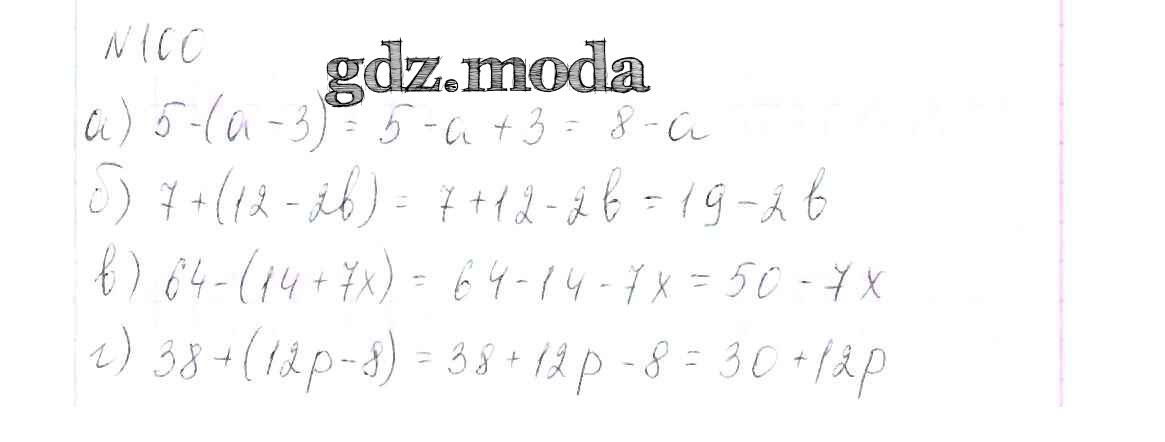 N100
gdz.moda
а) 5-(a-3) = 5-a+3 = 8-a
б) 7+(12-2b) = 7+12-2b = 19-2b
в) 64-(14+7x) = 64-14-7x = 50-7x
г) 38+(12p-8) = 38+12p-8 = 30+12p